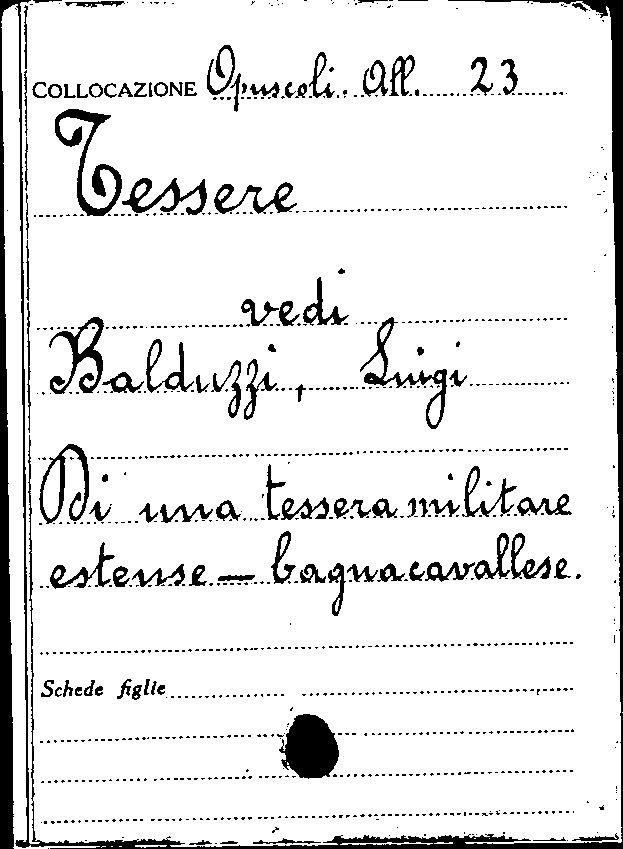 COLLOCAZIONE Opuscoli. All. 23
Tessere
vedi
Balduzzi, Luigi
Di una tessera militare
estense – bagnacavallese.
Schede figlie